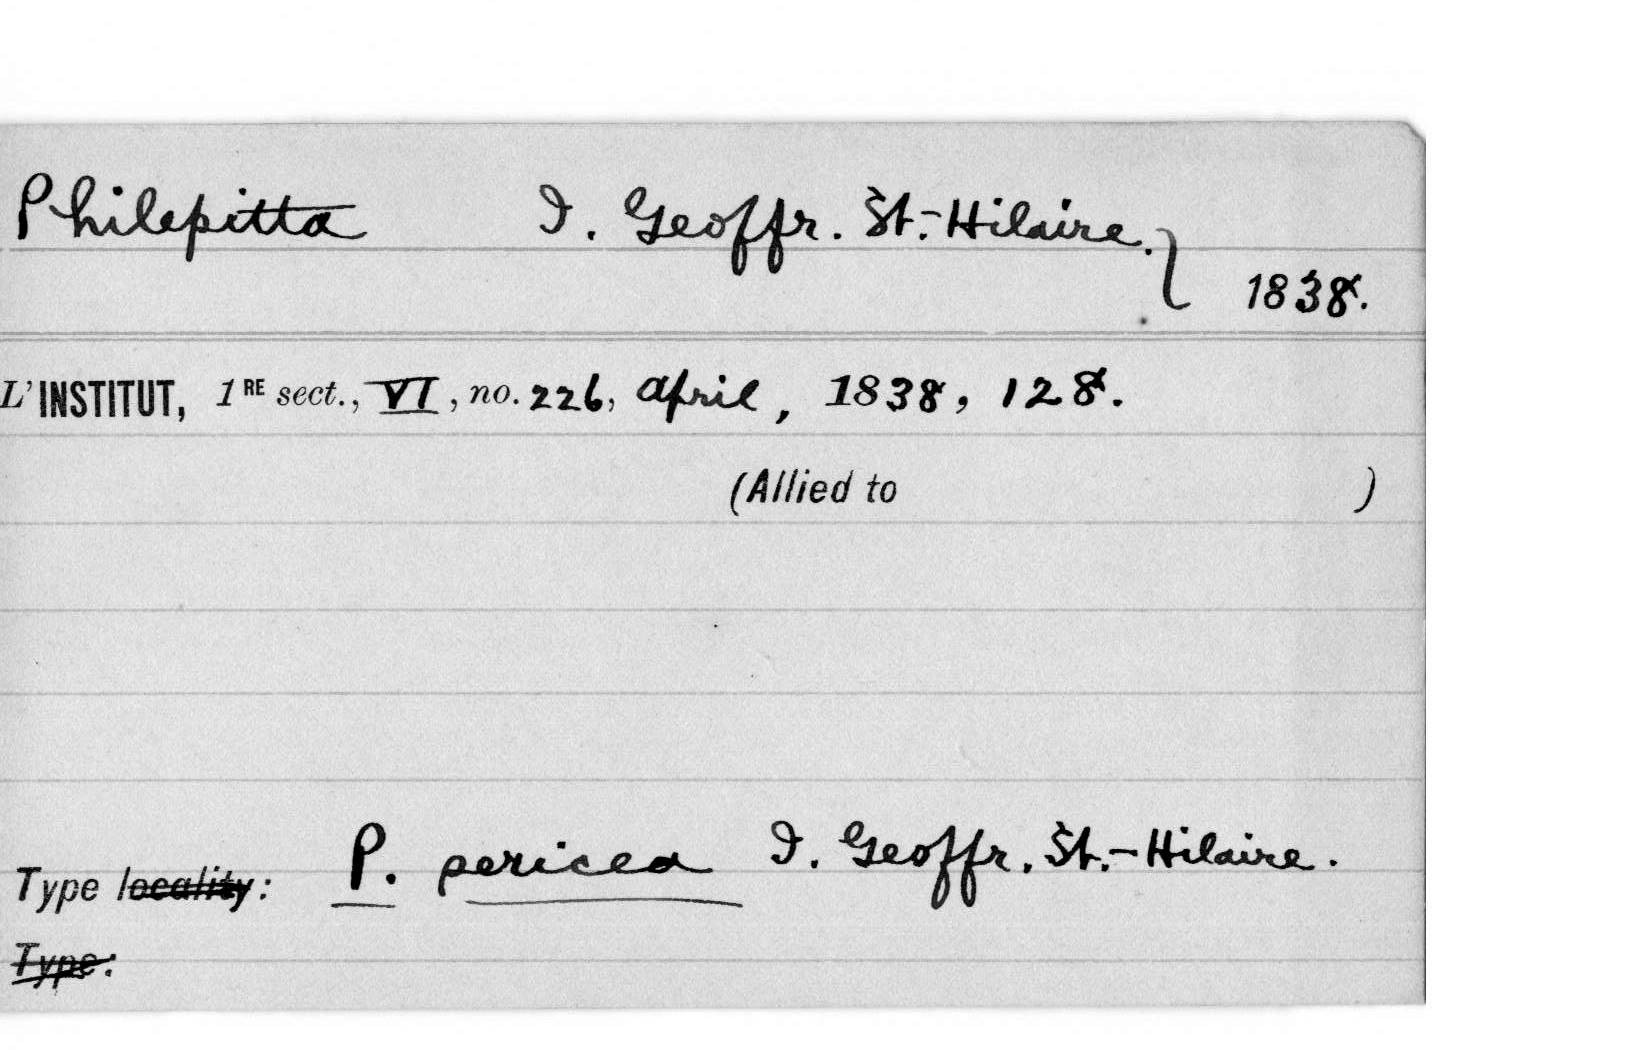 Philepitta I. Geoffr. St.-Hilaire.
1838.
L'INSTITUT, 1RE sect., VI, no. 226, April, 1838, 128.
(Allied to )
Type locality: P. sericea I. Geoffr. St.-Hilaire.
Type: